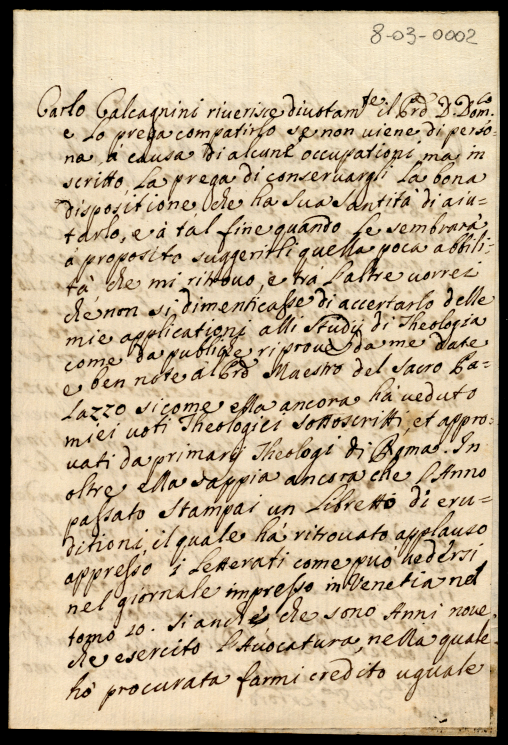 8-03-0002
Carlo Calcagnini riverisce divotam.te il Prd. D. Dom.co
e Lo prega compatirlo se non viene di perso-
na á causa di alcune occupationi, ma in
scritto La prega di conservargli La bona
dispositione, che ha Sua Santita di aiu-
tarlo, e á tal fine quando Le sembrara
á proposito suggeritli quella poca abbili-
tá che mi ritrovo, e trá L'altre vorrei
che non si dimenticasse di accertarlo delle
mie applicationi alli Studij di Theologia
come da publiche riprove da me date
e ben note al Prd Maestro del Sacro Pa-
Lazzo sicome ella ancora há veduto
miei voti Theologici sottoscritti, et appro-
vati da primarij Theologi di Roma. In
oltre ella sappia ancora che L'Anno
passato Stampai un Libretto di eru-
ditioni, il quale há ritrovato applauso
appresso i Letterati come puo vedersi
nel giornale impresso in Venetia nel
tomo 20. Si anche che sono Anni nove,
che esercito L'Avocatura, nella quale
hó procurata farmi credito uguale